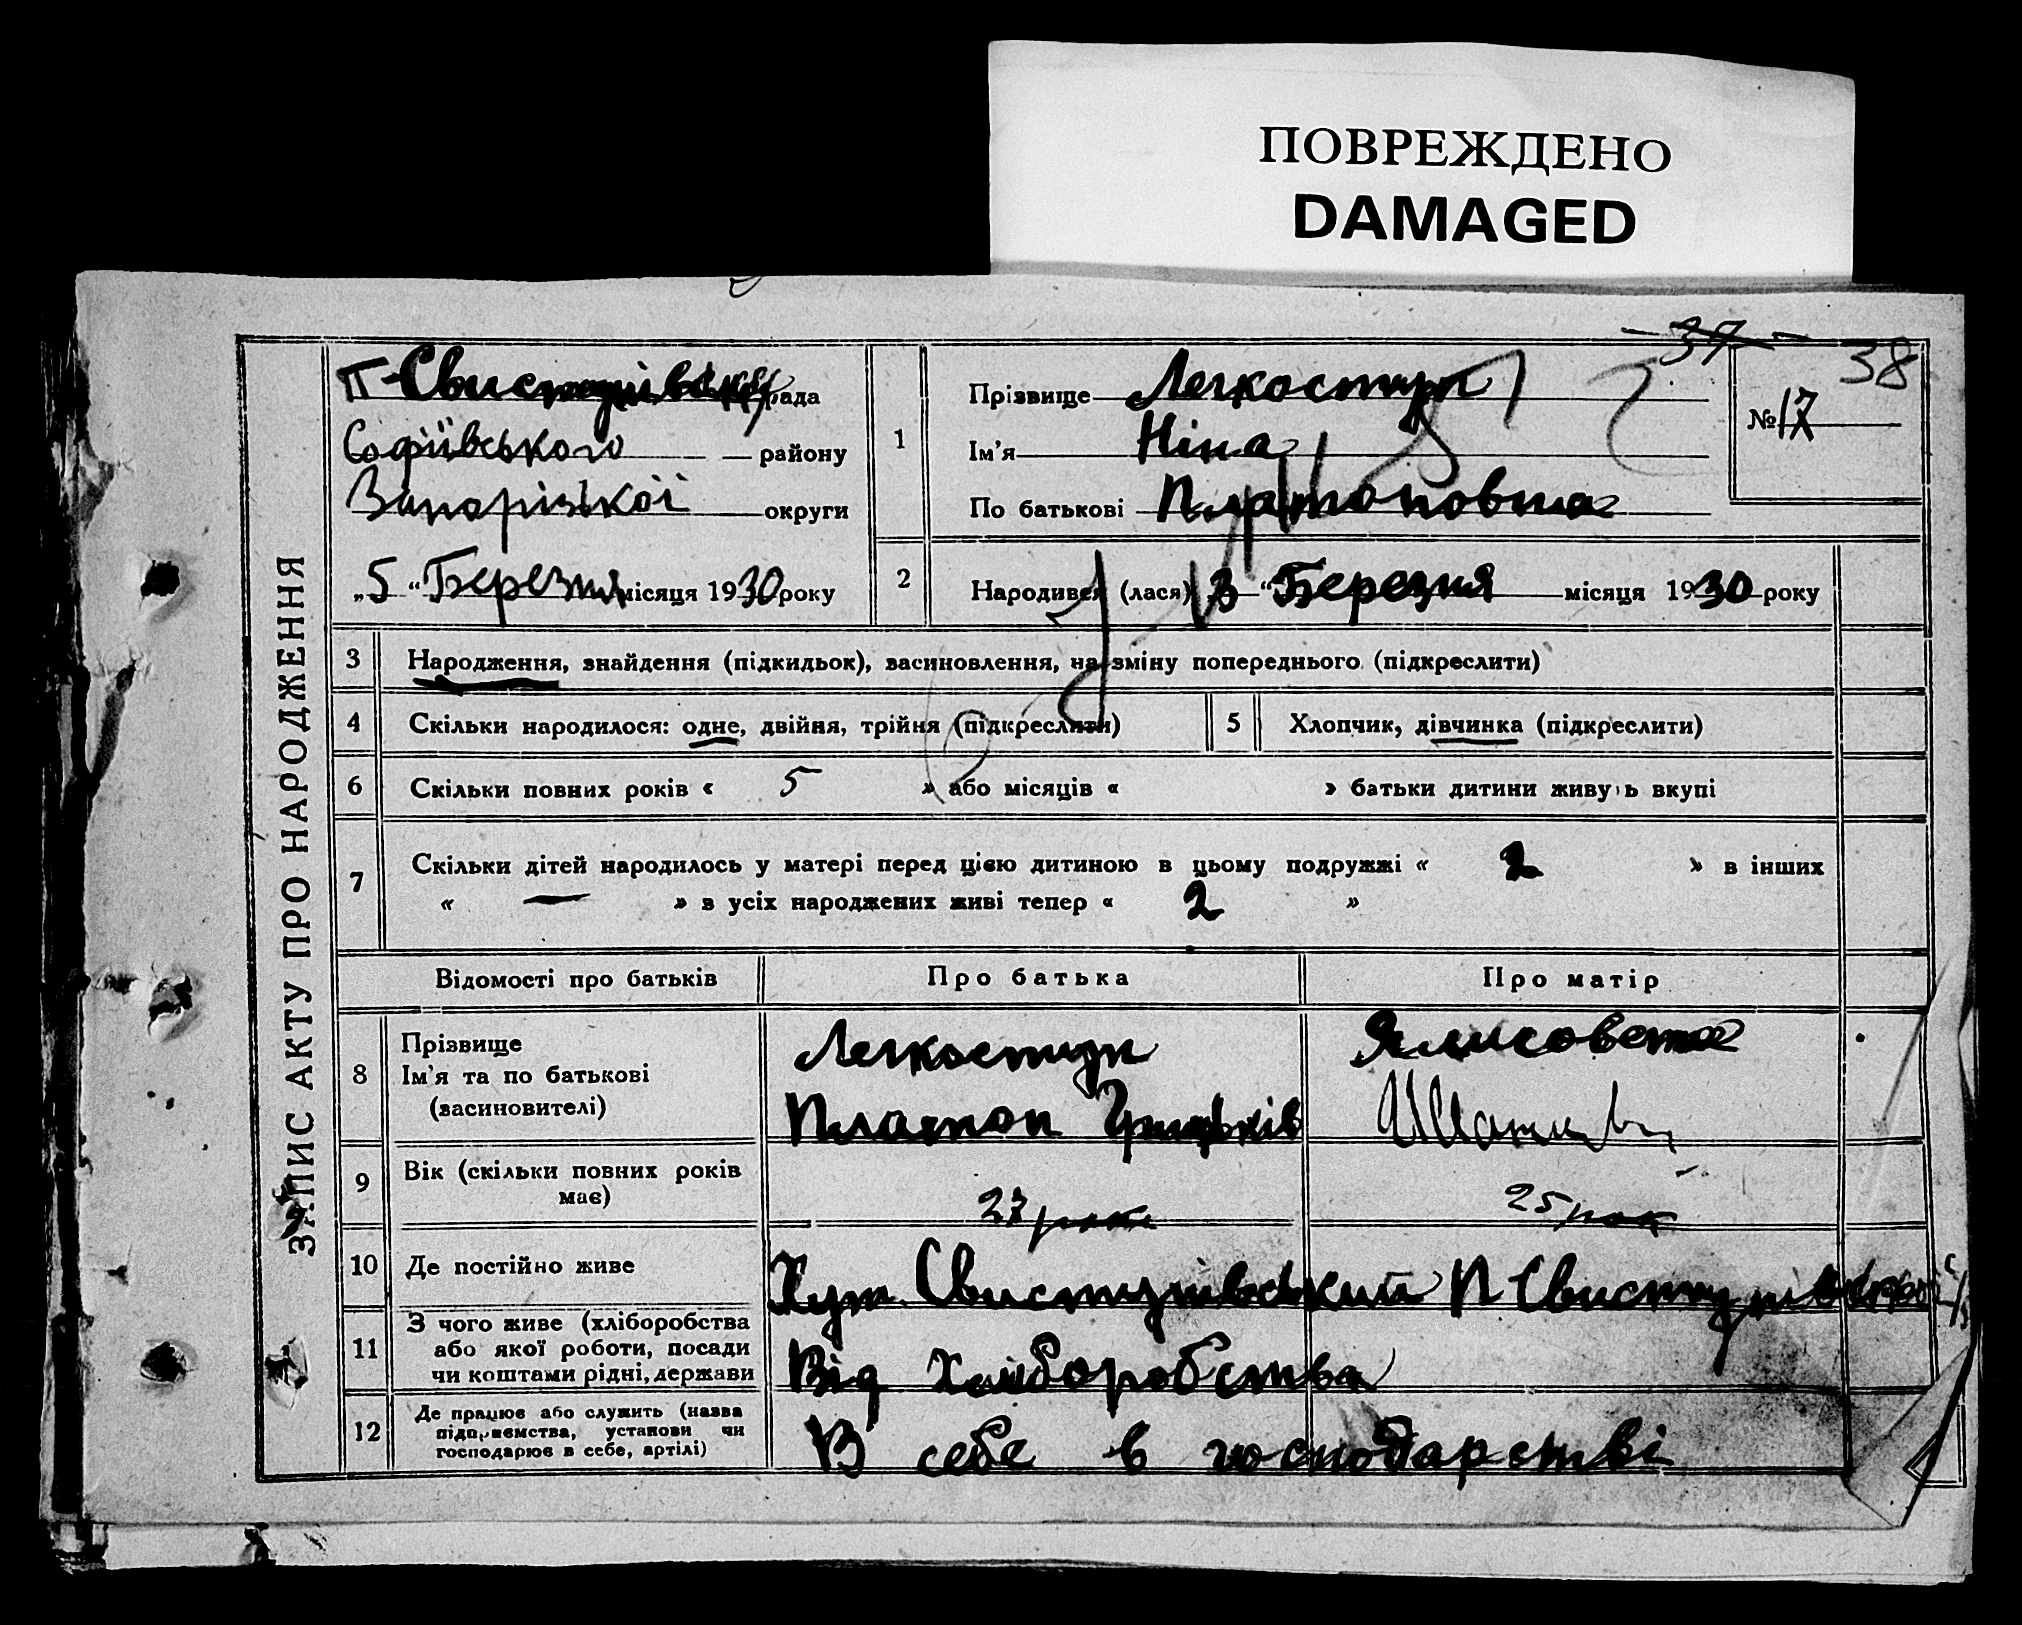 ПОВРЕЖДЕНО
DAMAGED
37
38
ЗАПИС АКТУ ПРО НАРОДЖЕННЯ
рада
Софіївського району
Запорізької округи
„5“ Березня місяця 1930 року
1
Прізвище Легкоступ
Ім'я Ніна
По батькові Платоновна
№ 17
2
Народився (лася) 3 “ Березня місяця 1930 року
3 Народження, знайдення (підкидьок), васиновлення, на зміну попереднього (підкреслити)
4 Скільки народилося: одне, двійня, трійня (підкреслити)
5 Хлопчик, дівчинка (підкреслити)
6 Скільки повних років « 5 » або місяців « » батьки дитини живуть вкупі
7 Скільки дітей народилось у матері перед цією дитиною в цьому подружжі « 2 » в інших
« — » в усіх народжених живі тепер « 2 »
Відомості про батьків
Про батька
Про матір
8
Прізвище
Ім'я та по батькові
(васиновителі)
Легкоступ
Платон
Ялисовета
9
Вік (скільки повних років
має)
27
25 рок
10 Де постійно живе
Хут. Свистунівський П Свистунівської с/р
11
З чого живе (хліборобства
або якої роботи, посади
чи коштами рідні, держави
Від Хліборобства
12
Де працює або служить (назва
підприємства, установи чи
господарює в себе, артілі)
В себе в господарстві